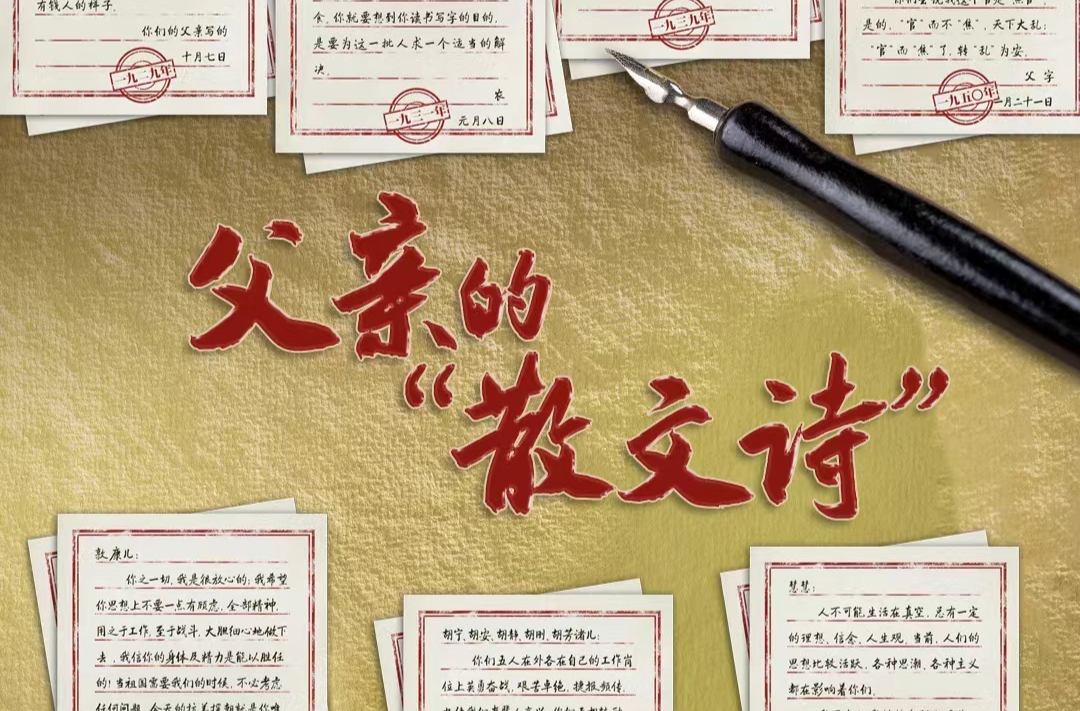 有钱人的样子.
你们的父亲写的
十月七日
一九二九年
食,你就要想到你读书写字的目的,
是要为这一批人求一个适当的解
决.
农
元月八日
一九三一年
一九三九年
是的,"官"而不"焦",天下大乱;
"官"而"焦"了,转"乱"为安.
父 字
一月二十一日
一九五〇年
父亲的
“散文诗”
敦康儿:
你之一切,我是很放心的;我希望
你思想上不要一点有顾虑,全部精神,
用之于工作,至于战斗,大胆细心地做下
去,我信你的身体及精力是能以胜任
的!当祖国需要我们的时候,不必考虑
胡宁、胡安、胡静、胡刚、胡芳诸儿:
你们五人在外各在自己的工作岗
位上英勇奋战,艰苦卓绝,捷报频传,
慧慧:
人不可能生活在真空,总有一定
的理想、信念、人生观,当前,人们的
思想比较活跃,各种思潮、各种主义
都在影响着你们.